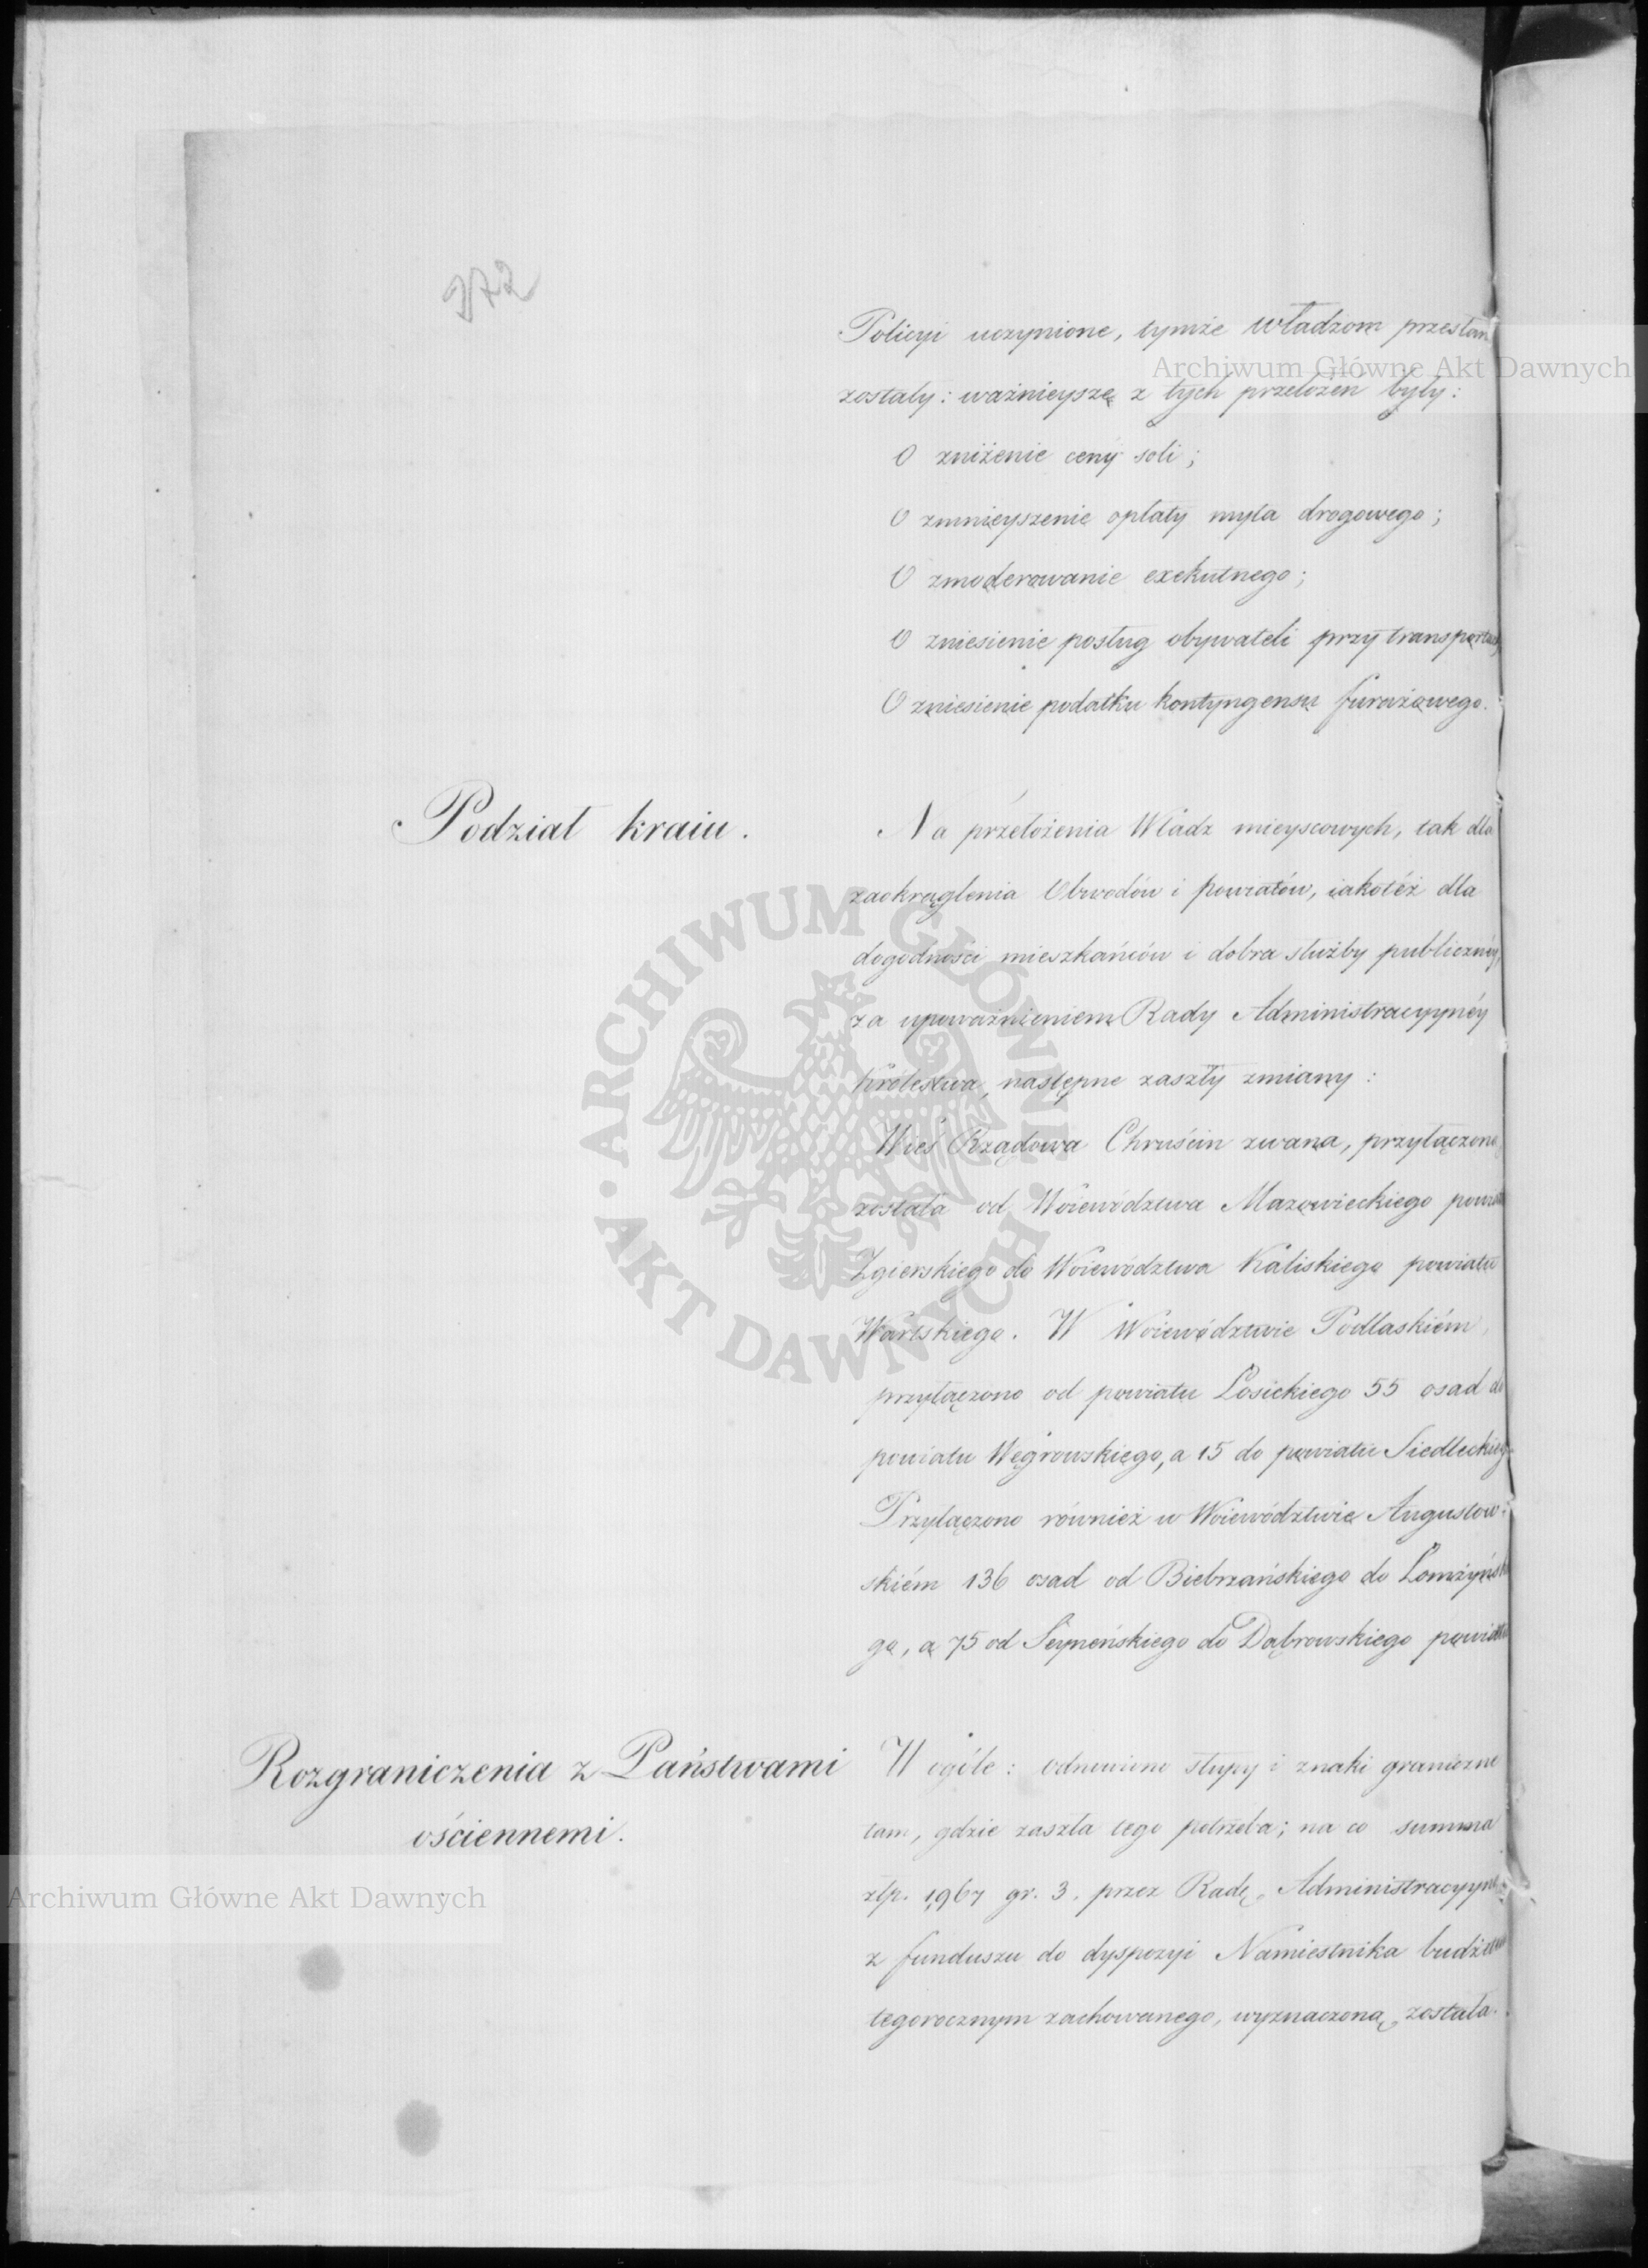 272
Policyi uczynione, tymże Władzom przesłane
zostały: ważnieysze z tych przełożeń były:
O zniżenie ceny soli;
O zmnieyszenie opłaty myta drogowego;
O zmoderowanie exekutnego;
O zniesienie posług obywateli przy transportach,
O zniesienie podatku kontyngensu furażowego.
Podział kraiu.
Na przełożenia Władz mieyscowych, tak dla
zaokrąglenia Obwodów i powiatów, iakotéż dla
dogodności mieszkańców i dobra służby publicznéy,
za upoważnieniem Rady Administracyynéy
Królestwa, następne zaszły zmiany:
Wieś Rządowa Chruścin zwana, przyłączoną
została od Woiewództwa Mazowieckiego powiatu
Zgierskiego do Woiewództwa Kaliskiego powiatu
Wartskiego. W Woiewództwie Podlaskiém
przyłączono od powiatu Łosickiego 55 osad do
powiatu Węgrowskiego, a 15 do powiatu Siedleckiego.
Przyłączono również w Woiewództwie Augustow-
skiém 136 osad od Biebrzańskiego do Łomżyńskie
go, a 75 od Seyneńskiego do Dąbrowskiego powiatu
Rozgraniczenia z Państwami
ościennemi.
W ogóle: odnowiono słupy i znaki graniczne
tam, gdzie zaszła tego potrzeba; na co summa
złp. 1,967 gr. 3. przez Radę Administracyyną
z funduszu do dyspozyi Namiestnika budżetem
tegorocznym zachowanego, wyznaczoną została.
Archiwum Główne Akt Dawnych
ARCHIWUM GŁÓWNE · AKT DAWNYCH ·
Archiwum Główne Akt Dawnych